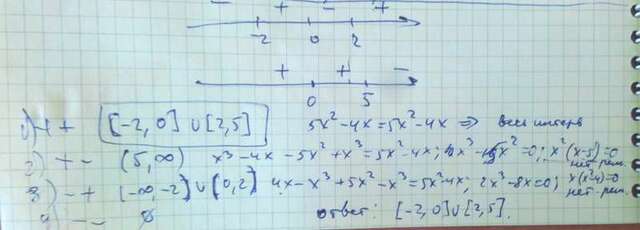 − + − +
−2 0 2
+ + −
0 5
1) + + [-2, 0] ∪ [2, 5] 5x² − 4x = 5x² − 4x ⇒ весь интерв
2) + − (5, ∞) x³ − 4x − 5x² + x³ = 5x² − 4x; x²(x−5)=0 нет реш.
3) − + (-∞, -2) ∪ (0, 2) 4x − x³ + 5x² − x³ = 5x² − 4x; 2x³ − 8x = 0; x(x²−4)=0 нет реш.
4) − −
ответ: [-2, 0] ∪ [2, 5].